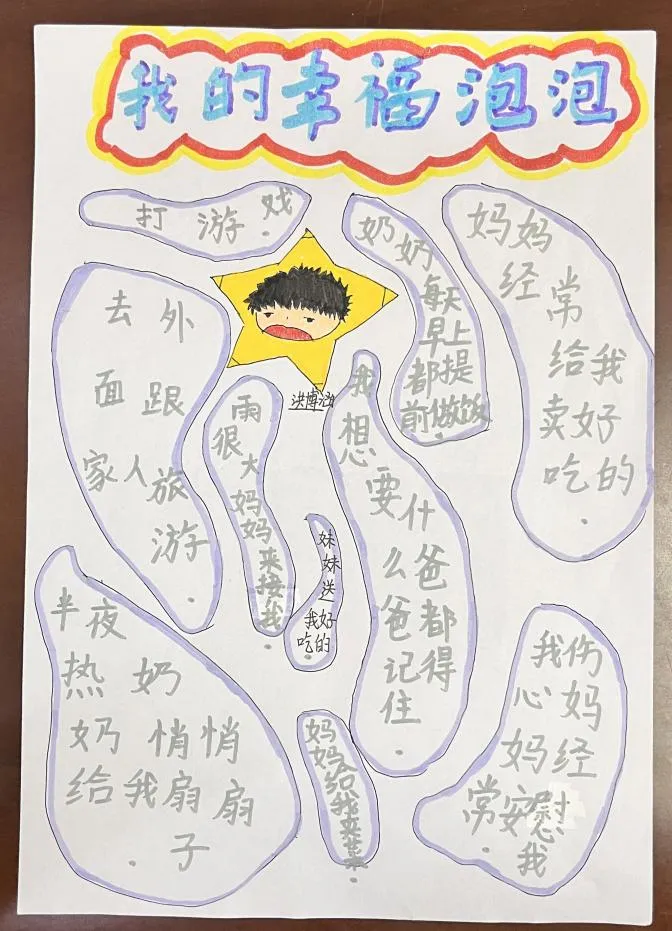 我的幸福泡泡
打游戏
奶奶
每天
早上
都提
前做饭
妈妈
经常
给我
卖好
吃的
去外
面跟
家人旅
游
洪博涵
雨
很大
妈妈
来接
我
我
想
要什
么爸
爸都
记得
住
妹
妹送
我好
吃的
半夜
热奶
奶悄悄
给我扇扇
子
妈
妈给
我夹菜
我伤
心妈
妈经
常安慰
我